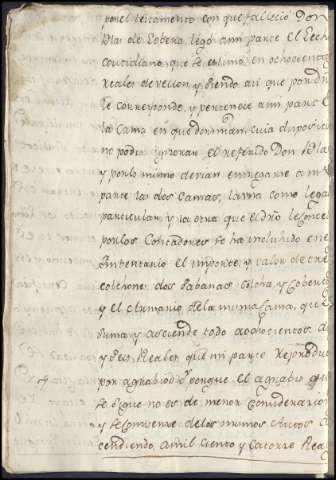 por el testamento con que fallecio Don
Blas de Lobera, lego a mi parte el Lecho
Coutidiano, que se estimo, en ochocientos
reales de vellon, y siendo asi que por dro
le corresponde, y pertenece a mi parte
la Cama en que dormian, cuia disposicion
no podia ignorar el referido Don Blas
y por lo mismo devian entregarse a mi
parte las dos Camas, la una como legado
particular y la otra que el dro le concede
por los Contadores se ha incluido en el
Imbentario el importe, y valor de tres
colchones, dos sabanas Colcha y Cobertor
y el
de la misma Cama, que
suma y asciende todo a ochocientos
y seis Reales, que mi parte reproduce
por agrabio: porque el agrabio que
no es de menor Consideracion
y se combence de los mismos Autos
cendiendo, a mil Ciento y Catorce Reales